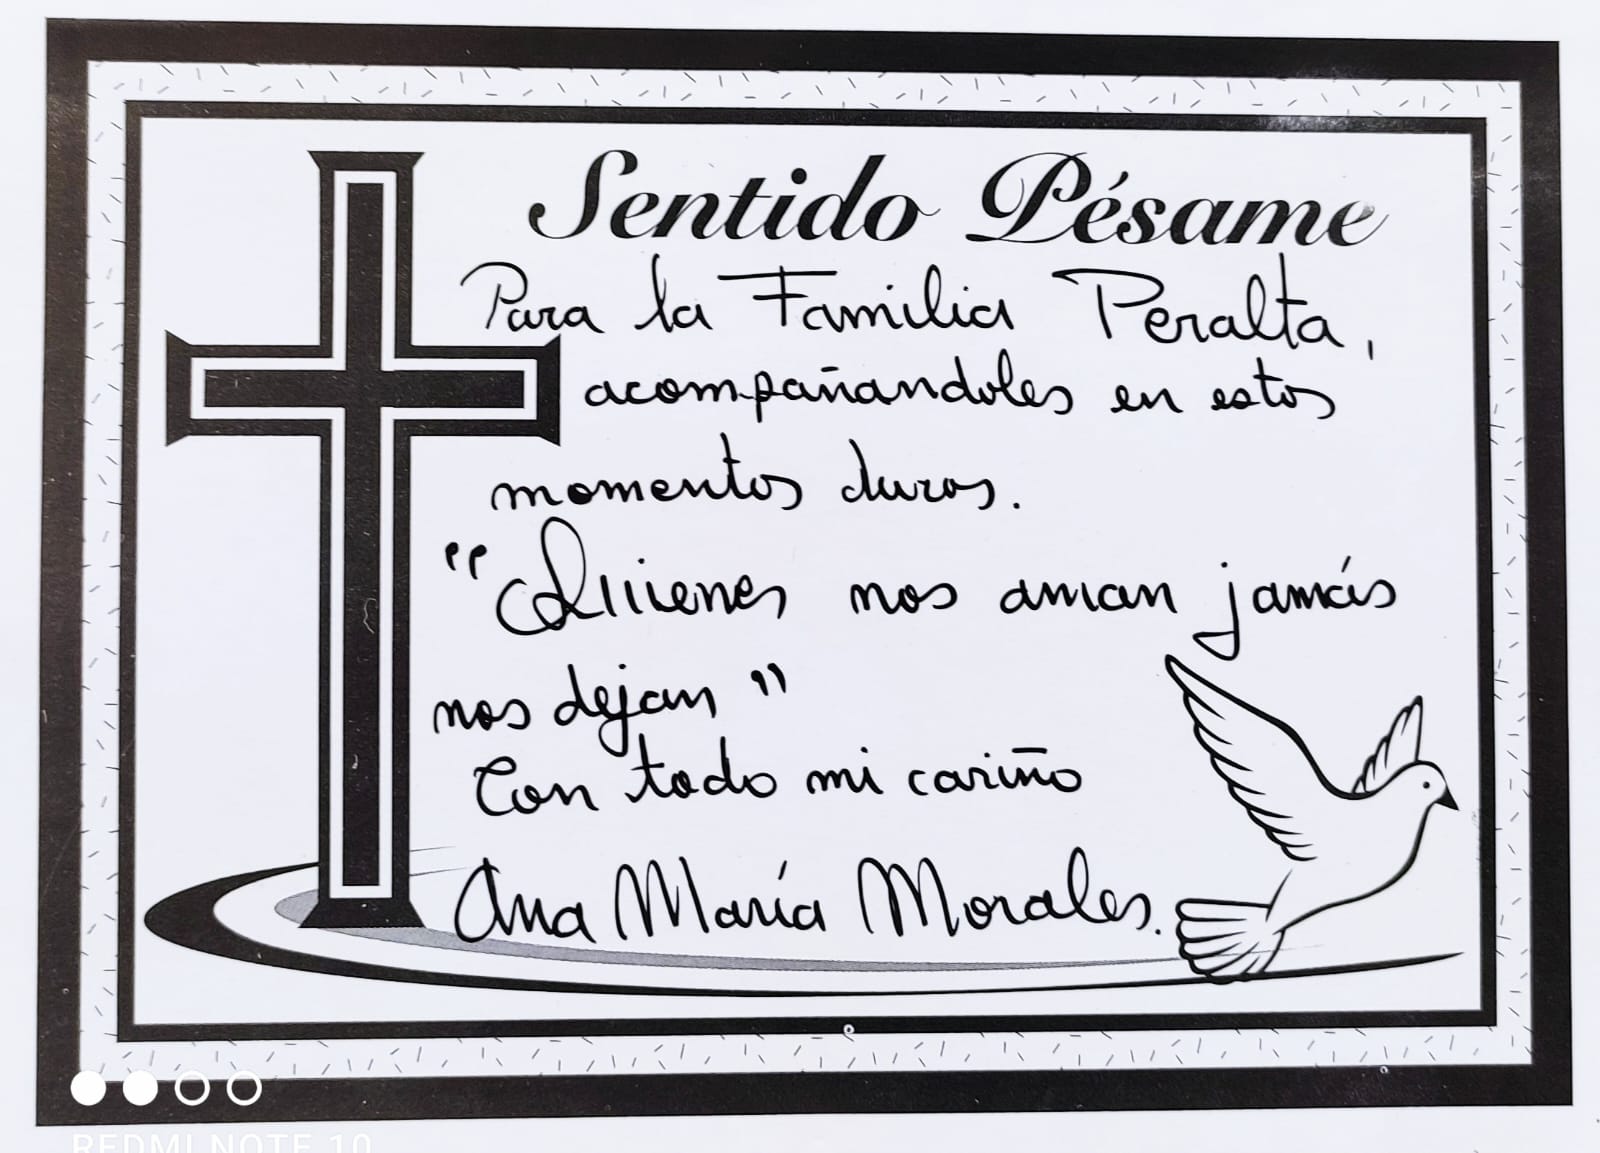 Sentido Pésame
Para la Familia Peralta,
acompañandoles en estos
momentos duros.
"Quienes nos aman jamás
nos dejan"
Con todo mi cariño
Ana María Morales.
REDMI NOTE 10